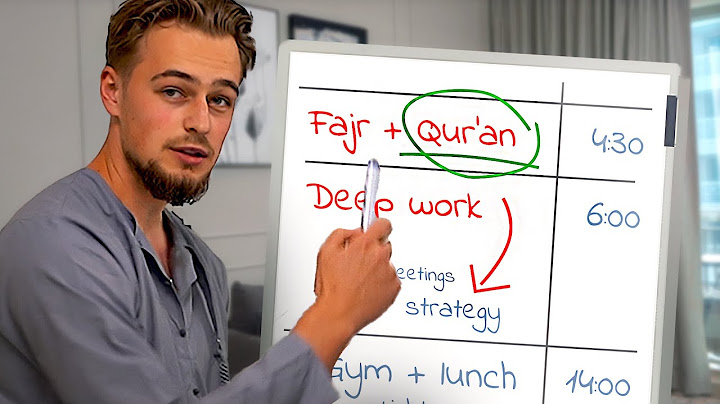 Fajr + Qur'an 4:30
Deep work 6:00
eetings
strategy
Gym + lunch 14:00